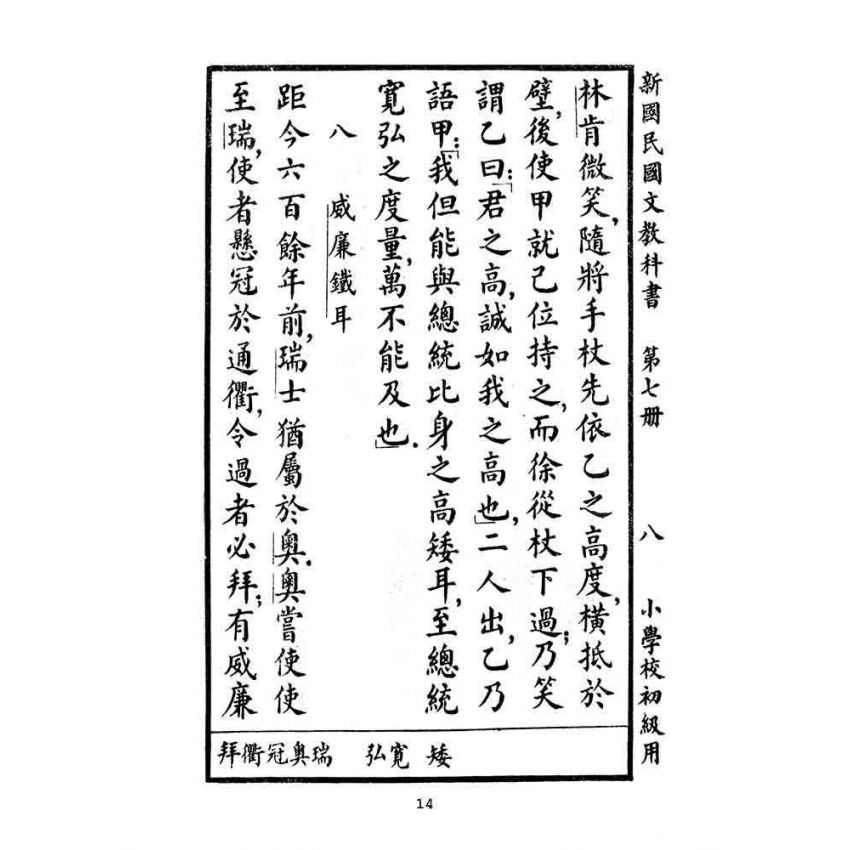 新國民國文教科書 第七册 八 小學校初級用
林肯微笑，隨將手杖先依乙之高度，橫抵於
壁，後使甲就己位持之，而徐從杖下過；乃笑
謂乙曰：「君之高，誠如我之高也」，二人出，乙乃
語甲：「我但能與總統比身之高矮耳，至總統
寬弘之度量，萬不能及也」．
八 威廉鐵耳
距今六百餘年前，瑞士猶屬於奧．奧嘗使使
至瑞，使者懸冠於通衢，令過者必拜；有威廉
矮 寬弘 瑞奧冠衢拜
14